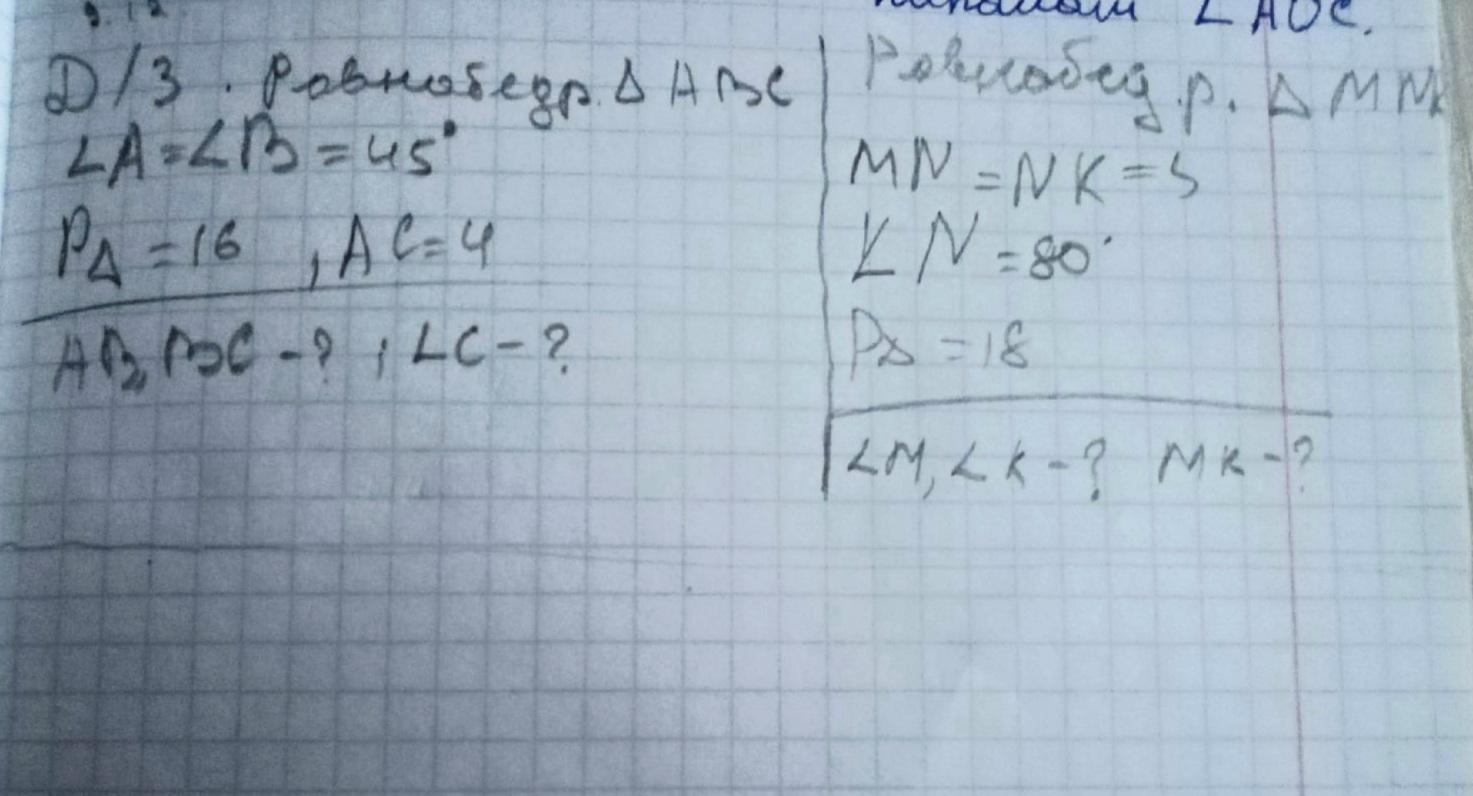 ∠AOC.
D/З. Равнобедр. Δ ABC
∠A=∠B=45°
PΔ=16 , AC=4
AB, BC-? , ∠C-?
Равнобед.р. Δ MNK
MN=NK=5
∠N=80°
PΔ=18
∠M, ∠K-? MK-?